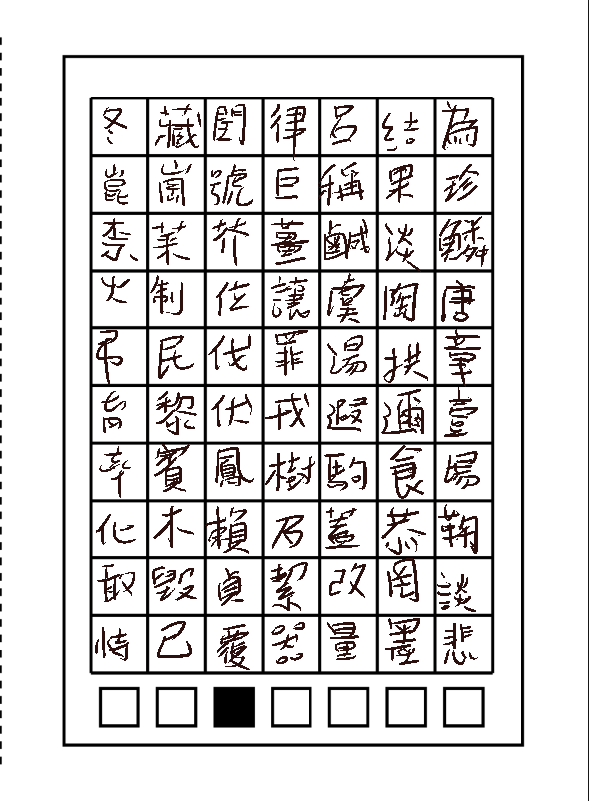 冬藏閏律呂結為
崑崗號巨稱果珍
柰菜芥薑鹹淡鱗
火制位讓虞陶唐
弔民伐罪湯拱章
育黎伏戎遐邇壹
率賓鳳樹駒食場
化木賴及蓋恭鞠
敢毀貞絜改罔談
恃己覆器量墨悲